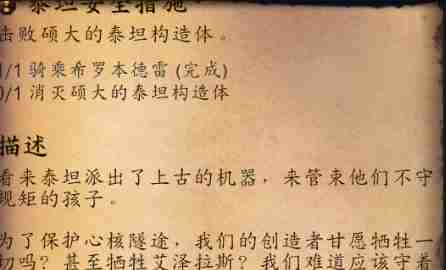 泰坦安全措施
击败硕大的泰坦构造体。
1/1 骑乘希罗本德雷 (完成)
0/1 消灭硕大的泰坦构造体
描述
看来泰坦派出了上古的机器，来管束他们不守
规矩的孩子。
为了保护心核隧途，我们的创造者甘愿牺牲一
切吗？甚至牺牲艾泽拉斯？我们难道应该守着